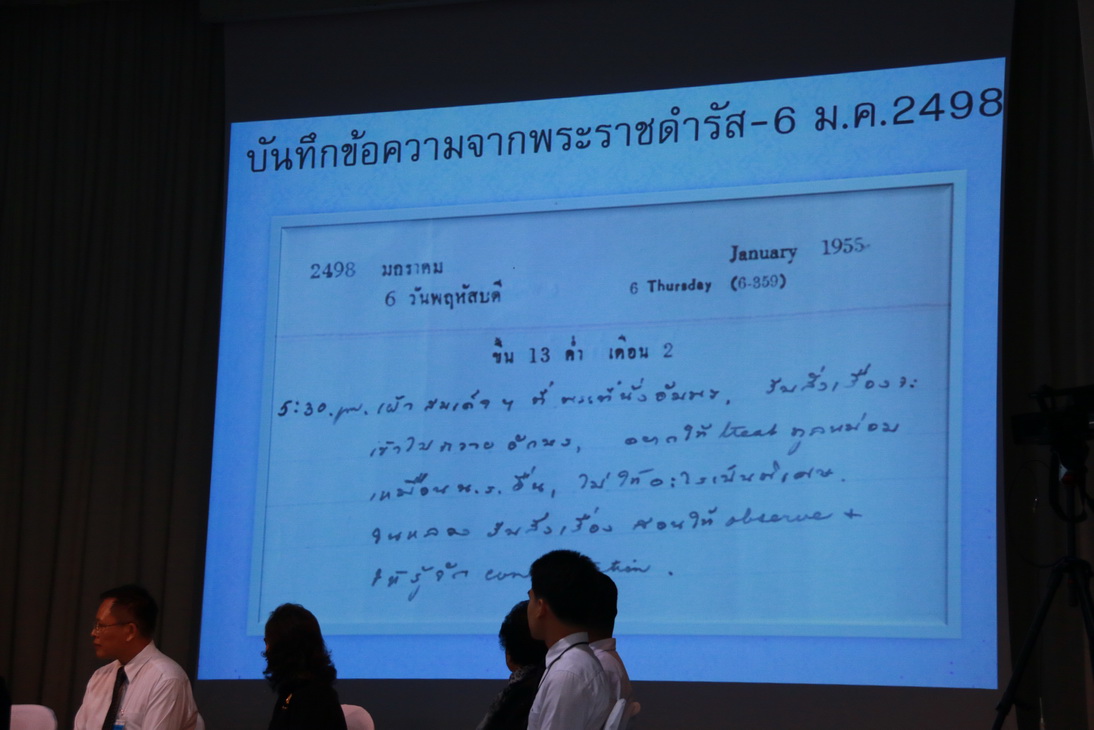 บันทึกข้อความจากพระราชดำรัส-6 ม.ค.2498
2498 มกราคม January 1955
6 วันพฤหัสบดี 6 Thursday (6-359)
ขึ้น 13 ค่ำ เดือน 2
5:30 pm. เฝ้า สมเด็จฯ ที่ พระที่นั่งอัมพร, รับสั่งเรื่องจะ
เข้าไปถวาย อักษร, อยากให้ treat ทูลหม่อม
เหมือน น.ร. อื่น, ไม่ให้อะไรเป็นพิเศษ.
ในหลวง รับสั่งเรื่อง สอนให้ observe +
ให้รู้จัก